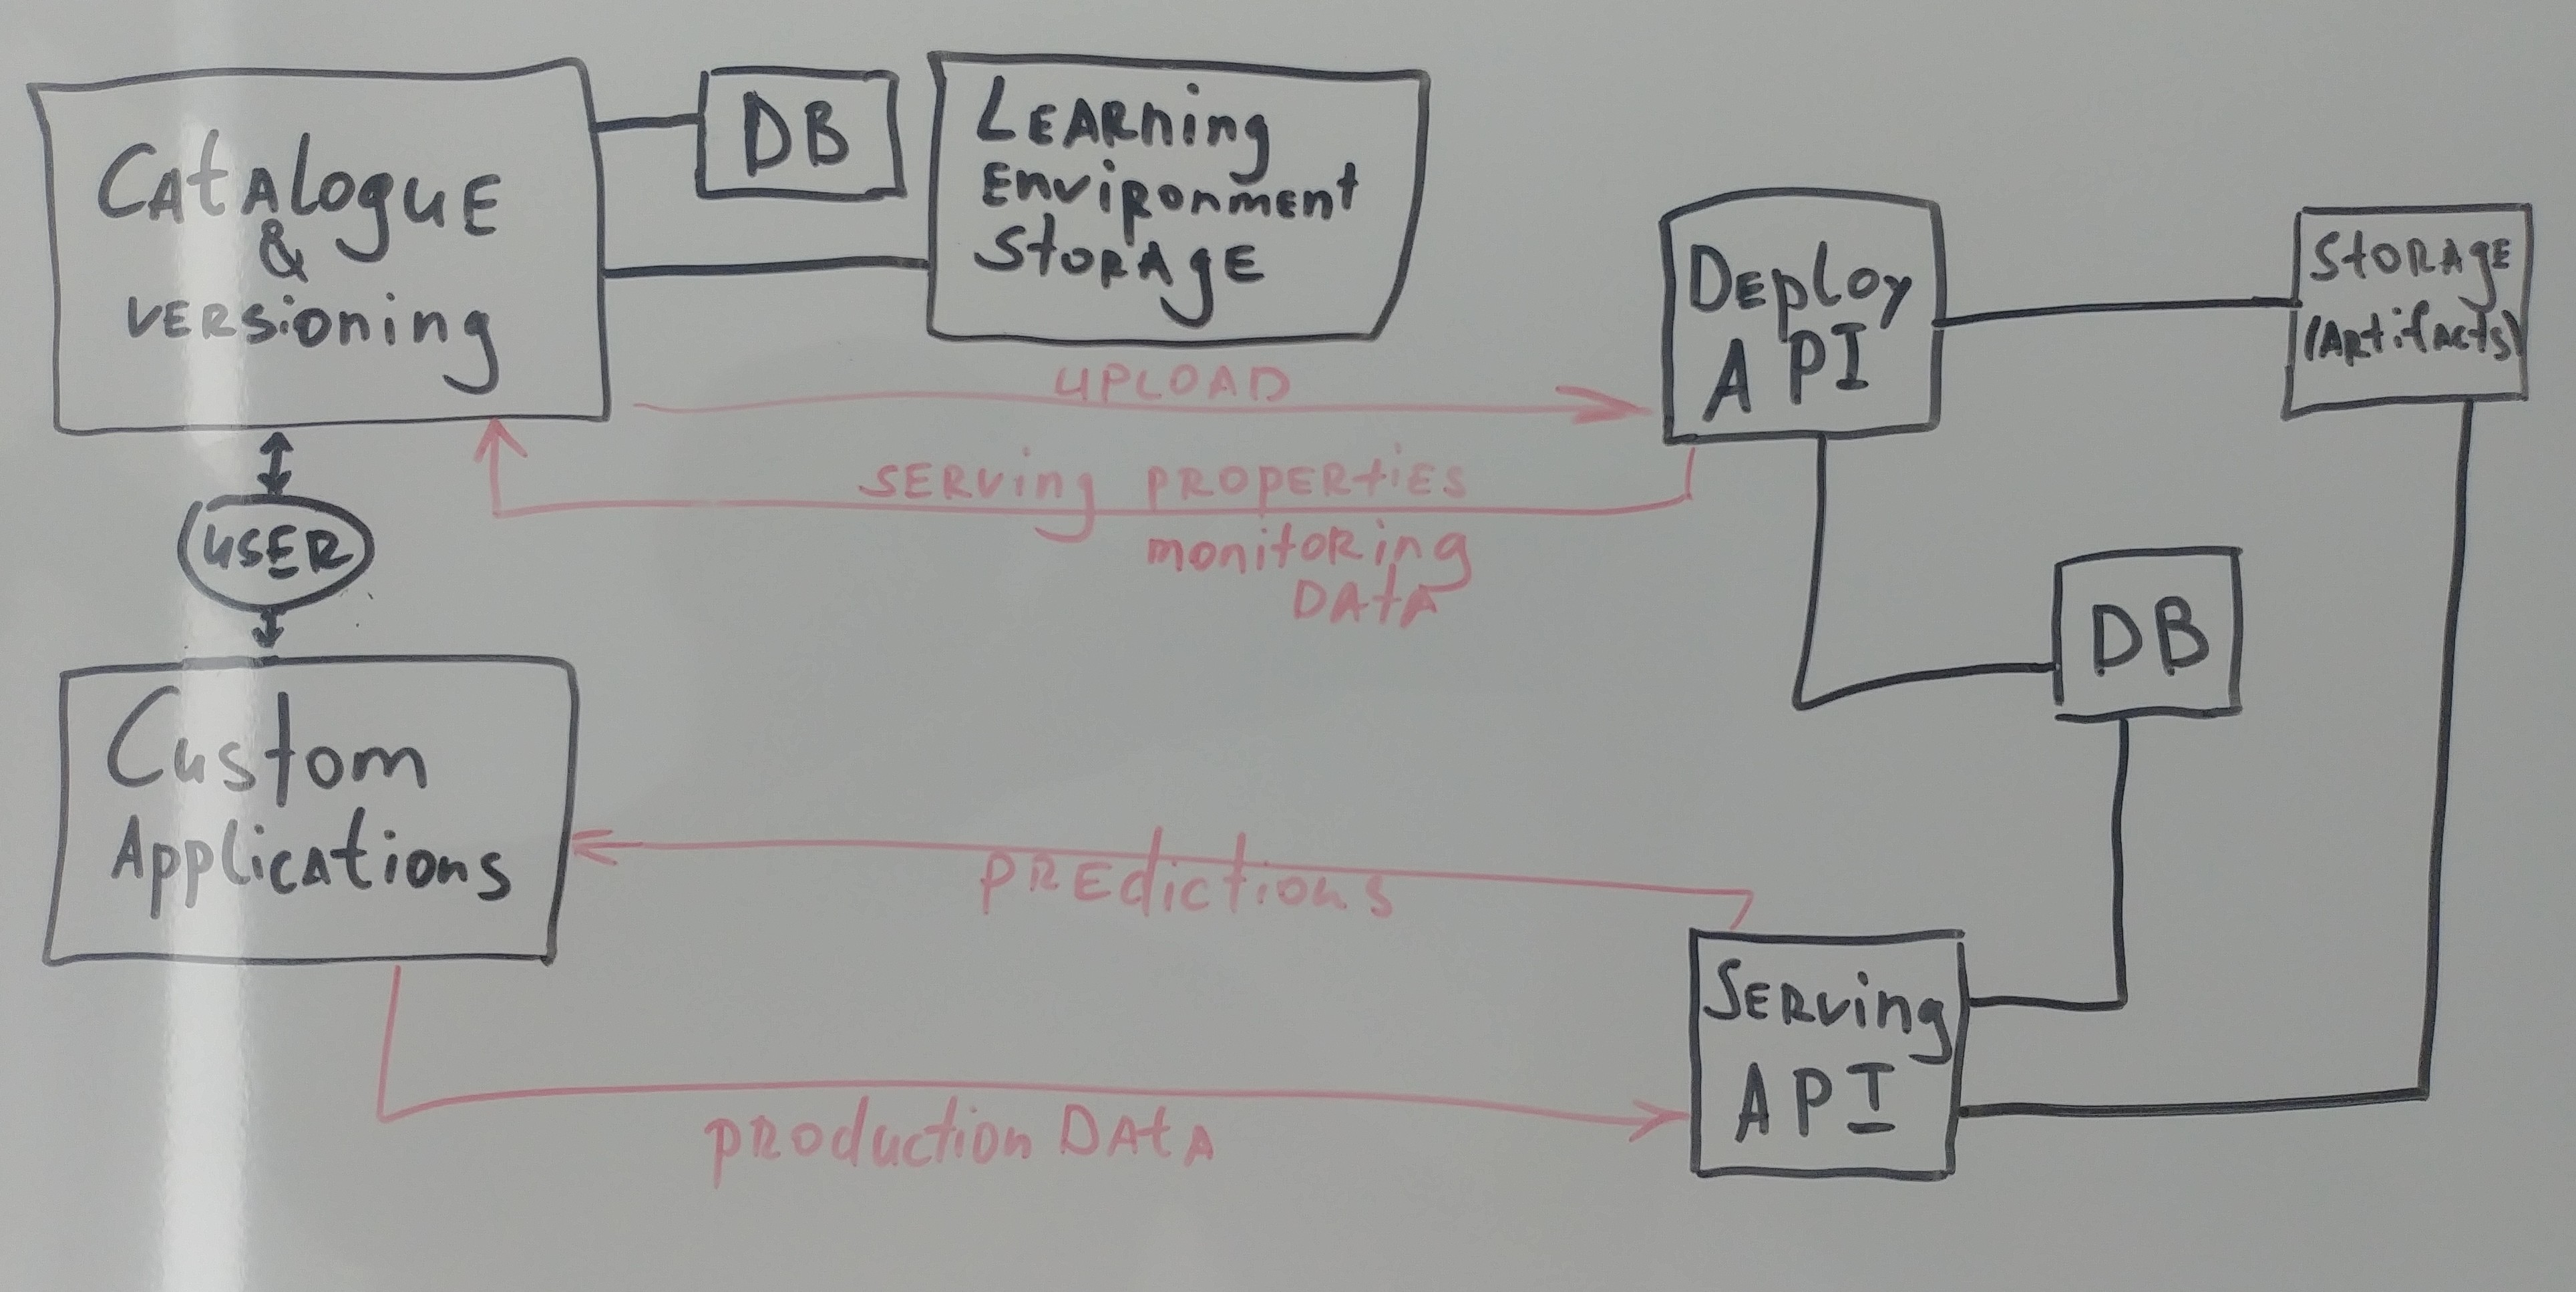 Catalogue
&
versioning
DB
Learning
Environment
Storage
Deploy
API
Storage
(Artifacts)
UPLOAD
Serving properties
monitoring
Data
User
DB
Custom
Applications
Predictions
Serving
API
production Data